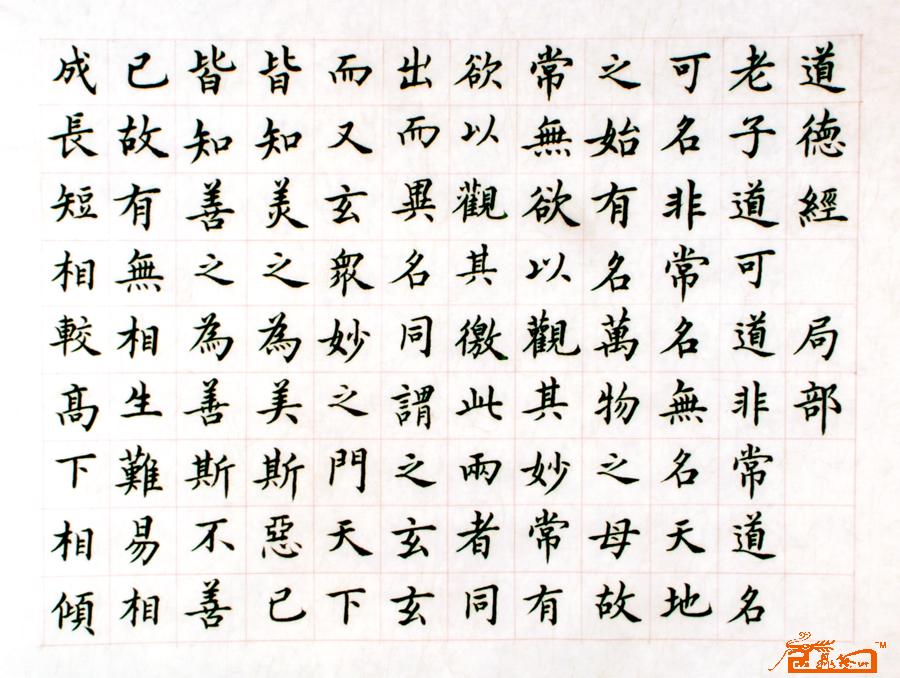 道德經 局部
老子道可道非常道名
可名非常名無名天地
之始有名萬物之母故
常無欲以觀其妙常有
欲以觀其徼此兩者同
出而異名同謂之玄玄
而又玄衆妙之門天下
皆知美之為美斯惡已
皆知善之為善斯不善
已故有無相生難易相
成長短相較高下相傾